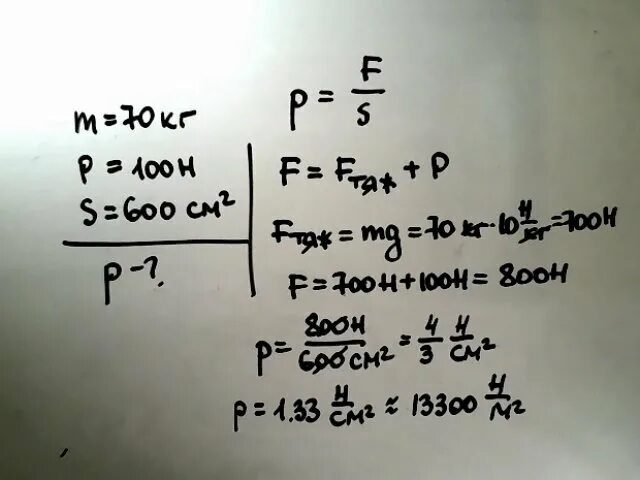 m = 70 кг
P = 100 Н
S = 600 см²
p - ?
p = F/S
F = Fтяж + P
Fтяж = mg = 70 кг · 10 Н/кг = 700 Н
F = 700 Н + 100 Н = 800 Н
p = 800 Н / 600 см² = 4/3 Н/см²
p = 1.33 Н/см² ≈ 13300 Н/м²